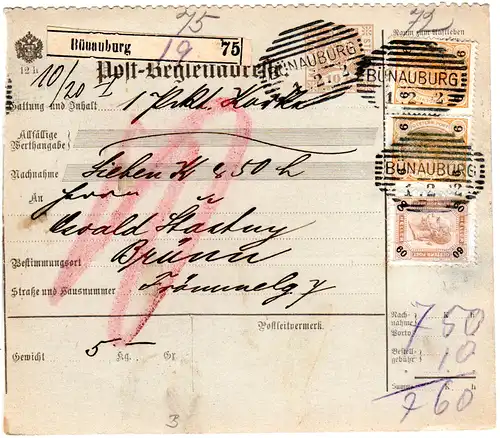 75
79
Bünauburg 19 75
Raum zum Aufkleben
12 h
10/20
Post-Begleitadresse
10
BÜNAUBURG
1.2.2
BÜNAUBURG
1.2.2
BÜNAUBURG
1.2.02
6
6
9
9
60
60
Gattung und Inhalt 1 Pkt
Allfällige
Werthangabe
Nachnahme Sieben K & 50 h
An Herrn
Oswald
Bestimmungsort Brünn
Straße und Hausnummer
Postleitvermerk.
Gewicht 5 Kg. Gr
Nachnahme 7 50
Porto
Bestellgebühr 10
Summe K h
7 60
3